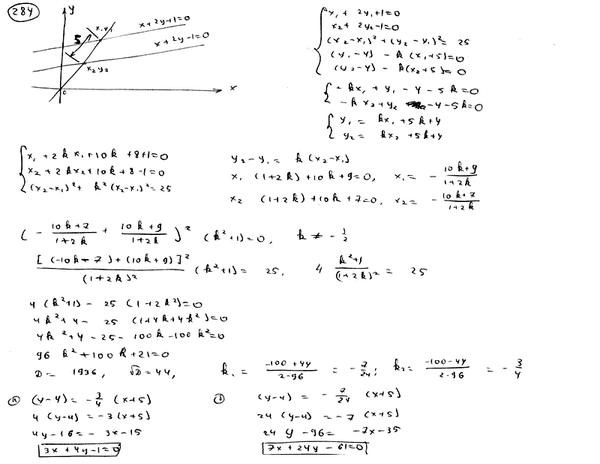 284
y
x₁ y₁
x+2y+1=0
x+2y-1=0
5
x₂ y₂
0
x
x₁ + 2y₁+1=0
x₂+ 2y₂-1=0
(x₂-x₁)² + (y₂-y₁)² = 25
(y₁-4) - k(x₁+5)=0
(y₂-4) - k(x₂+5)=0
-kx₁+y₁-4-5k=0
-kx₂+y₂-4-5k=0
y₁ = kx₁+5k+4
y₂ = kx₂+5k+4
x₁+2kx₁+10k+8+1=0
x₂+2kx₂+10k+8-1=0
(x₂-x₁)²+ k²(x₂-x₁)²=25
y₂-y₁= k(x₂-x₁)
x₁ (1+2k)+10k+9=0, x₁= - (10k+9)/(1+2k)
x₂ (1+2k)+10k+7=0, x₂= - (10k+7)/(1+2k)
(- (10k+7)/(1+2k) + (10k+9)/(1+2k))² (k²+1)=0, k ≠ - 1/2
[(-10k-7)+(10k+9)]²/(1+2k)² (k²+1) = 25, 4 (k²+1)/(1+2k)² = 25
4(k²+1) - 25 (1+2k²)=0
4k²+4 - 25 (1+4k+4k²)=0
4k²+4-25-100k-100k²=0
96k²+100k+21=0
D= 1936, √D=44, k₁= (-100+44)/(2·96) = - 7/24; k₂= (-100-44)/(2·96) = - 3/4
(y-4) = - 3/4 (x+5)
4(y-4)=-3(x+5)
4y-16=-3x-15
3x+4y-1=0
(y-4) = - 7/24 (x+5)
24(y-4)=-7(x+5)
24y-96=-7x-35
7x+24y-61=0